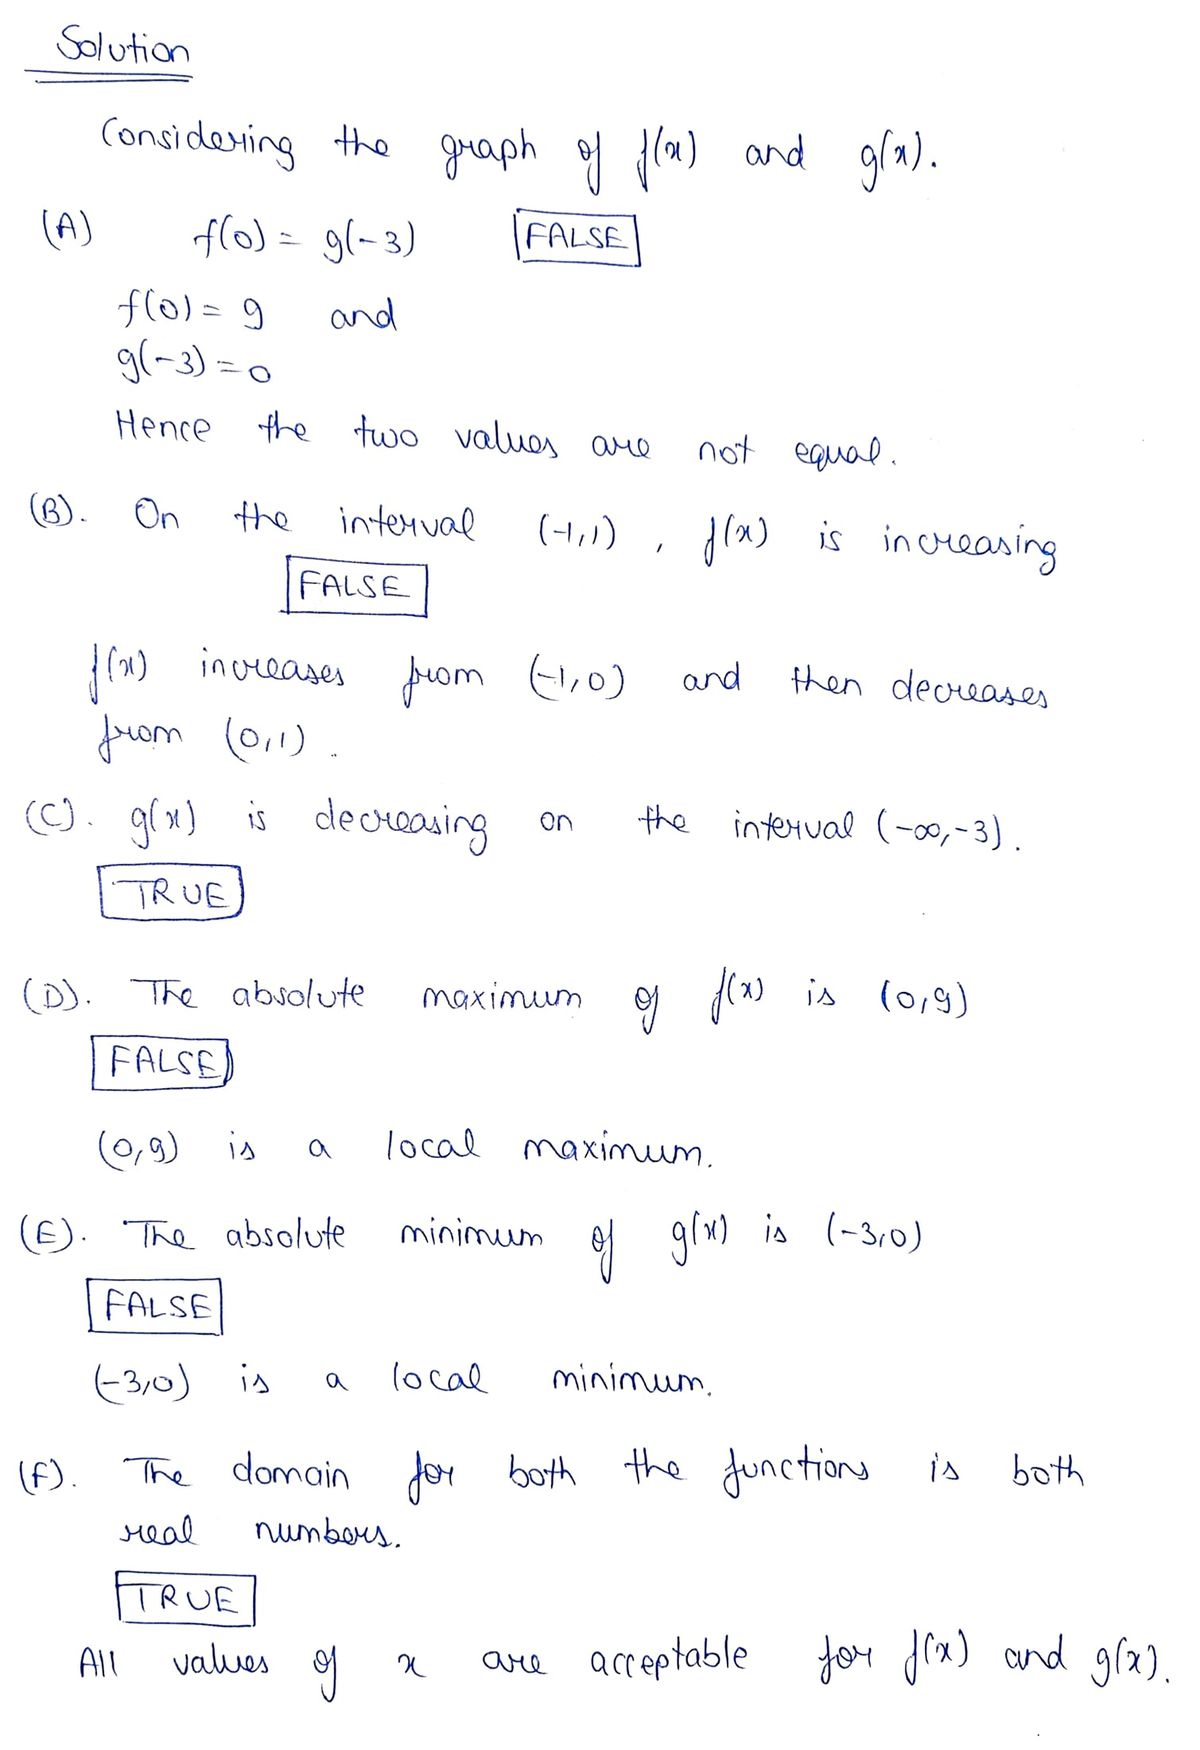 Solution
Considering the graph of f(x) and g(x).
(A) f(0) = g(-3) FALSE
f(0) = 9 and
g(-3) = 0
Hence the two values are not equal.
(B). On the interval (-1,1), f(x) is increasing
FALSE
f(x) increases from (-1,0) and then decreases
from (0,1).
(C). g(x) is decreasing on the interval (-∞,-3).
TRUE
(D). The absolute maximum of f(x) is (0,9)
FALSE
(0,9) is a local maximum.
(E). The absolute minimum of g(x) is (-3,0)
FALSE
(-3,0) is a local minimum.
(F). The domain for both the functions is both
real numbers.
TRUE
All values of x are acceptable for f(x) and g(x).